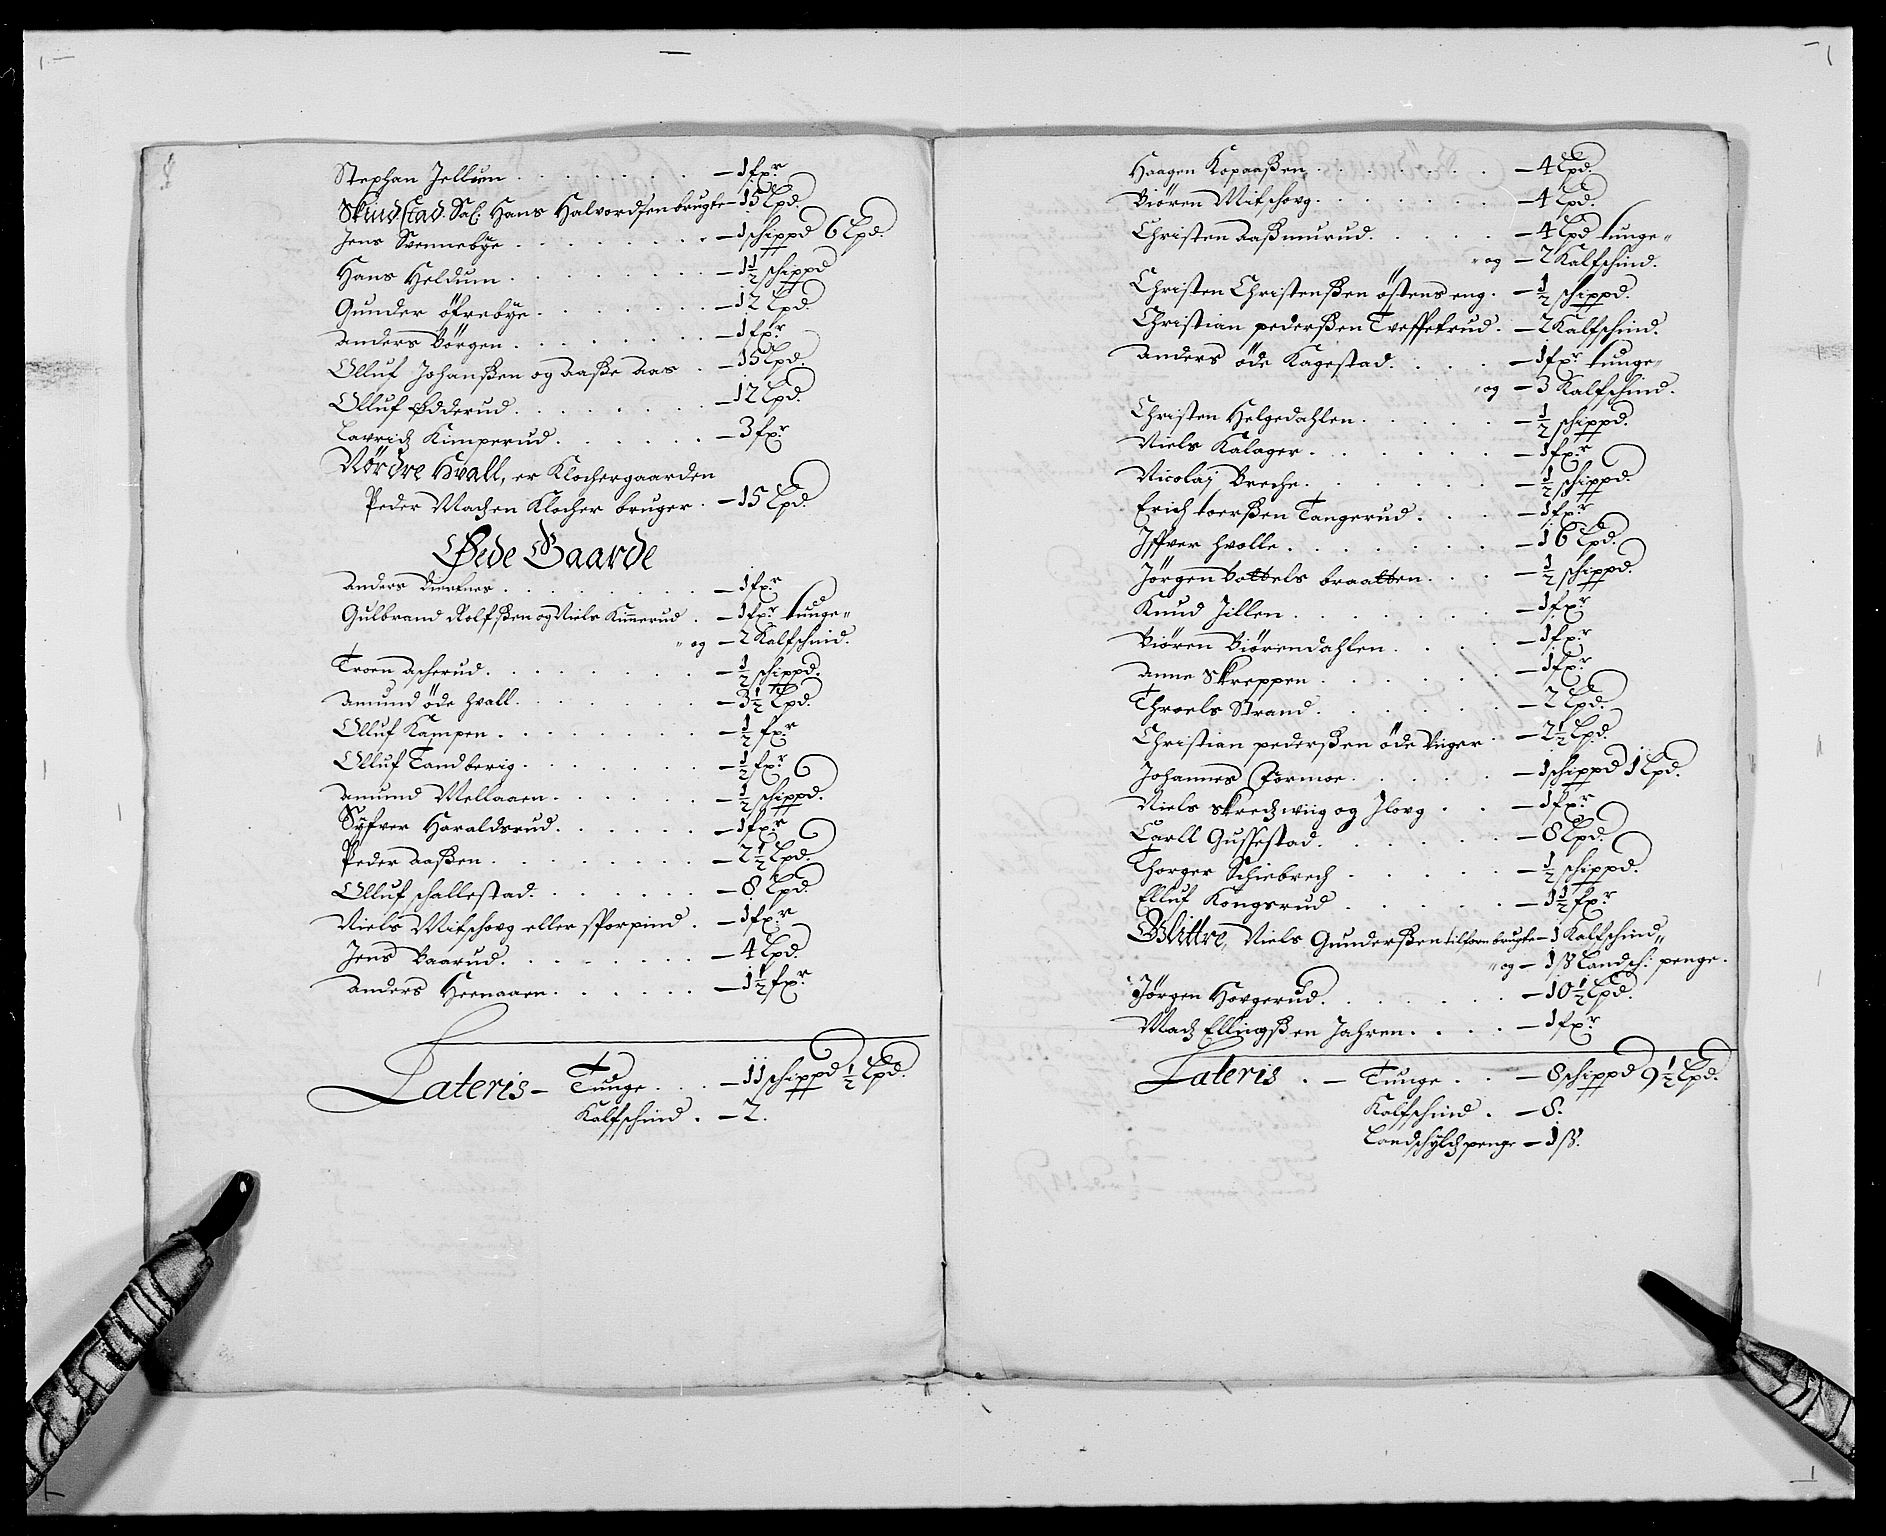 Stephan Jellum . . . . . . . — 1 fxr
Skindstad. Sal: Hans Halvordsen brugte — 15 Lpd.
Jens Svennebye . . . . . . . — 1 schippd 6 Lpd.
Hans Heldum . . . . . . . — 1½ schippd
Gunder öfrebye . . . . . . . — 12 Lpd.
Anders Börgen . . . . . . . — 1 fxr
Olluf Johanßen og Aaße Aas . — 15 Lpd.
Olluf Odderud . . . . . . . — 12 Lpd.
Lavridz Kimperud . . . . . . — 3 fxr
Nördre Hvall, er Klochergaarden
Peder Madzen Klocher bruger . — 15 Lpd.
Øede Gaarde
Anders . . . . . . . — 1 fxr
Gulbrand Rolfßen og Niels Kinnerud . — 1 fxr tunge
" og — 2 Kalfschind.
Troen Ascherud . . . . . . — ½ schippd.
Amund öde Hvall . . . . . . — 3½ Lpd.
Olluf Kampen . . . . . . . — ½ fxr
Olluf Tandberig . . . . . . — ½ fxr
Amund Mellaaen . . . . . . — ½ schippd.
Syfver Haraldsrud . . . . . — 1 fxr
Peder Aaßen . . . . . . . — 2½ Lpd.
Olluf Schallestad . . . . . . — 8 Lpd.
Niels Mitschovg eller Sporpind . — 1 fxr
Jens Baarud . . . . . . . — 4 Lpd.
Anders Heenaaen . . . . . . — 1½ fxr
Lateris — Tunge . . . — 11 schippd ½ Lpd.
Kalfschind . — 2.
Haagen Kopaaßen . . . . . . — 4 Lpd.
Biören Mitschovg . . . . . . — 4 Lpd.
Christen Aaßmurud . . . . . — 4 Lpd tunge
" og — 2 Kalfschind.
Christen Christenßen östens eng . — ½ schippd.
Christian Pederßen Tveffetrud . — 2 Kalfschind.
Anders öde Kagestad . . . . — 1 fxr tunge
" og — 3 Kalfschind.
Christen Helgedahlen . . . . . — ½ schippd.
Niels Kalager . . . . . . — 1 fxr
Nicolaj Breche . . . . . . — ½ schippd.
Erich toerßen Tangerud . . . — 1 fxr
Iffver Hvolle . . . . . . . — 16 Lpd.
Jörgen Bottels braatten . . . — ½ schippd.
Knud Jillen . . . . . . . — 1 fxr
Biören Biörendahlen . . . . — 1 fxr
Anne Skreppen . . . . . . — 1 fxr
Throels Strand . . . . . . — 2 Lpd.
Christian Pederßen öde Unger . — 2½ Lpd.
Johannes Formoe . . . . . — 1 schippd 1 Lpd.
Niels Skredzwiig og Ilovg . . — 1 fxr
Carll Gussestad . . . . . . — 8 Lpd.
Thorger Schiebrech . . . . . — ½ schippd.
Elluf Kongsrud . . . . . . — 1½ fxr
Glittre, Niels Gunderßen tilforn brugte — 1 Kalfschind
" og — 1 ß Landsch: penge.
Jörgen Hovgerud . . . . . . — 10½ Lpd.
Madz Ellingßen Jahren . . . . — 1 fxr
Lateris . — Tunge . . — 8 schippd 9½ Lpd.
Kalfschind . — 8.
Landschyldz penge — 1 ß.